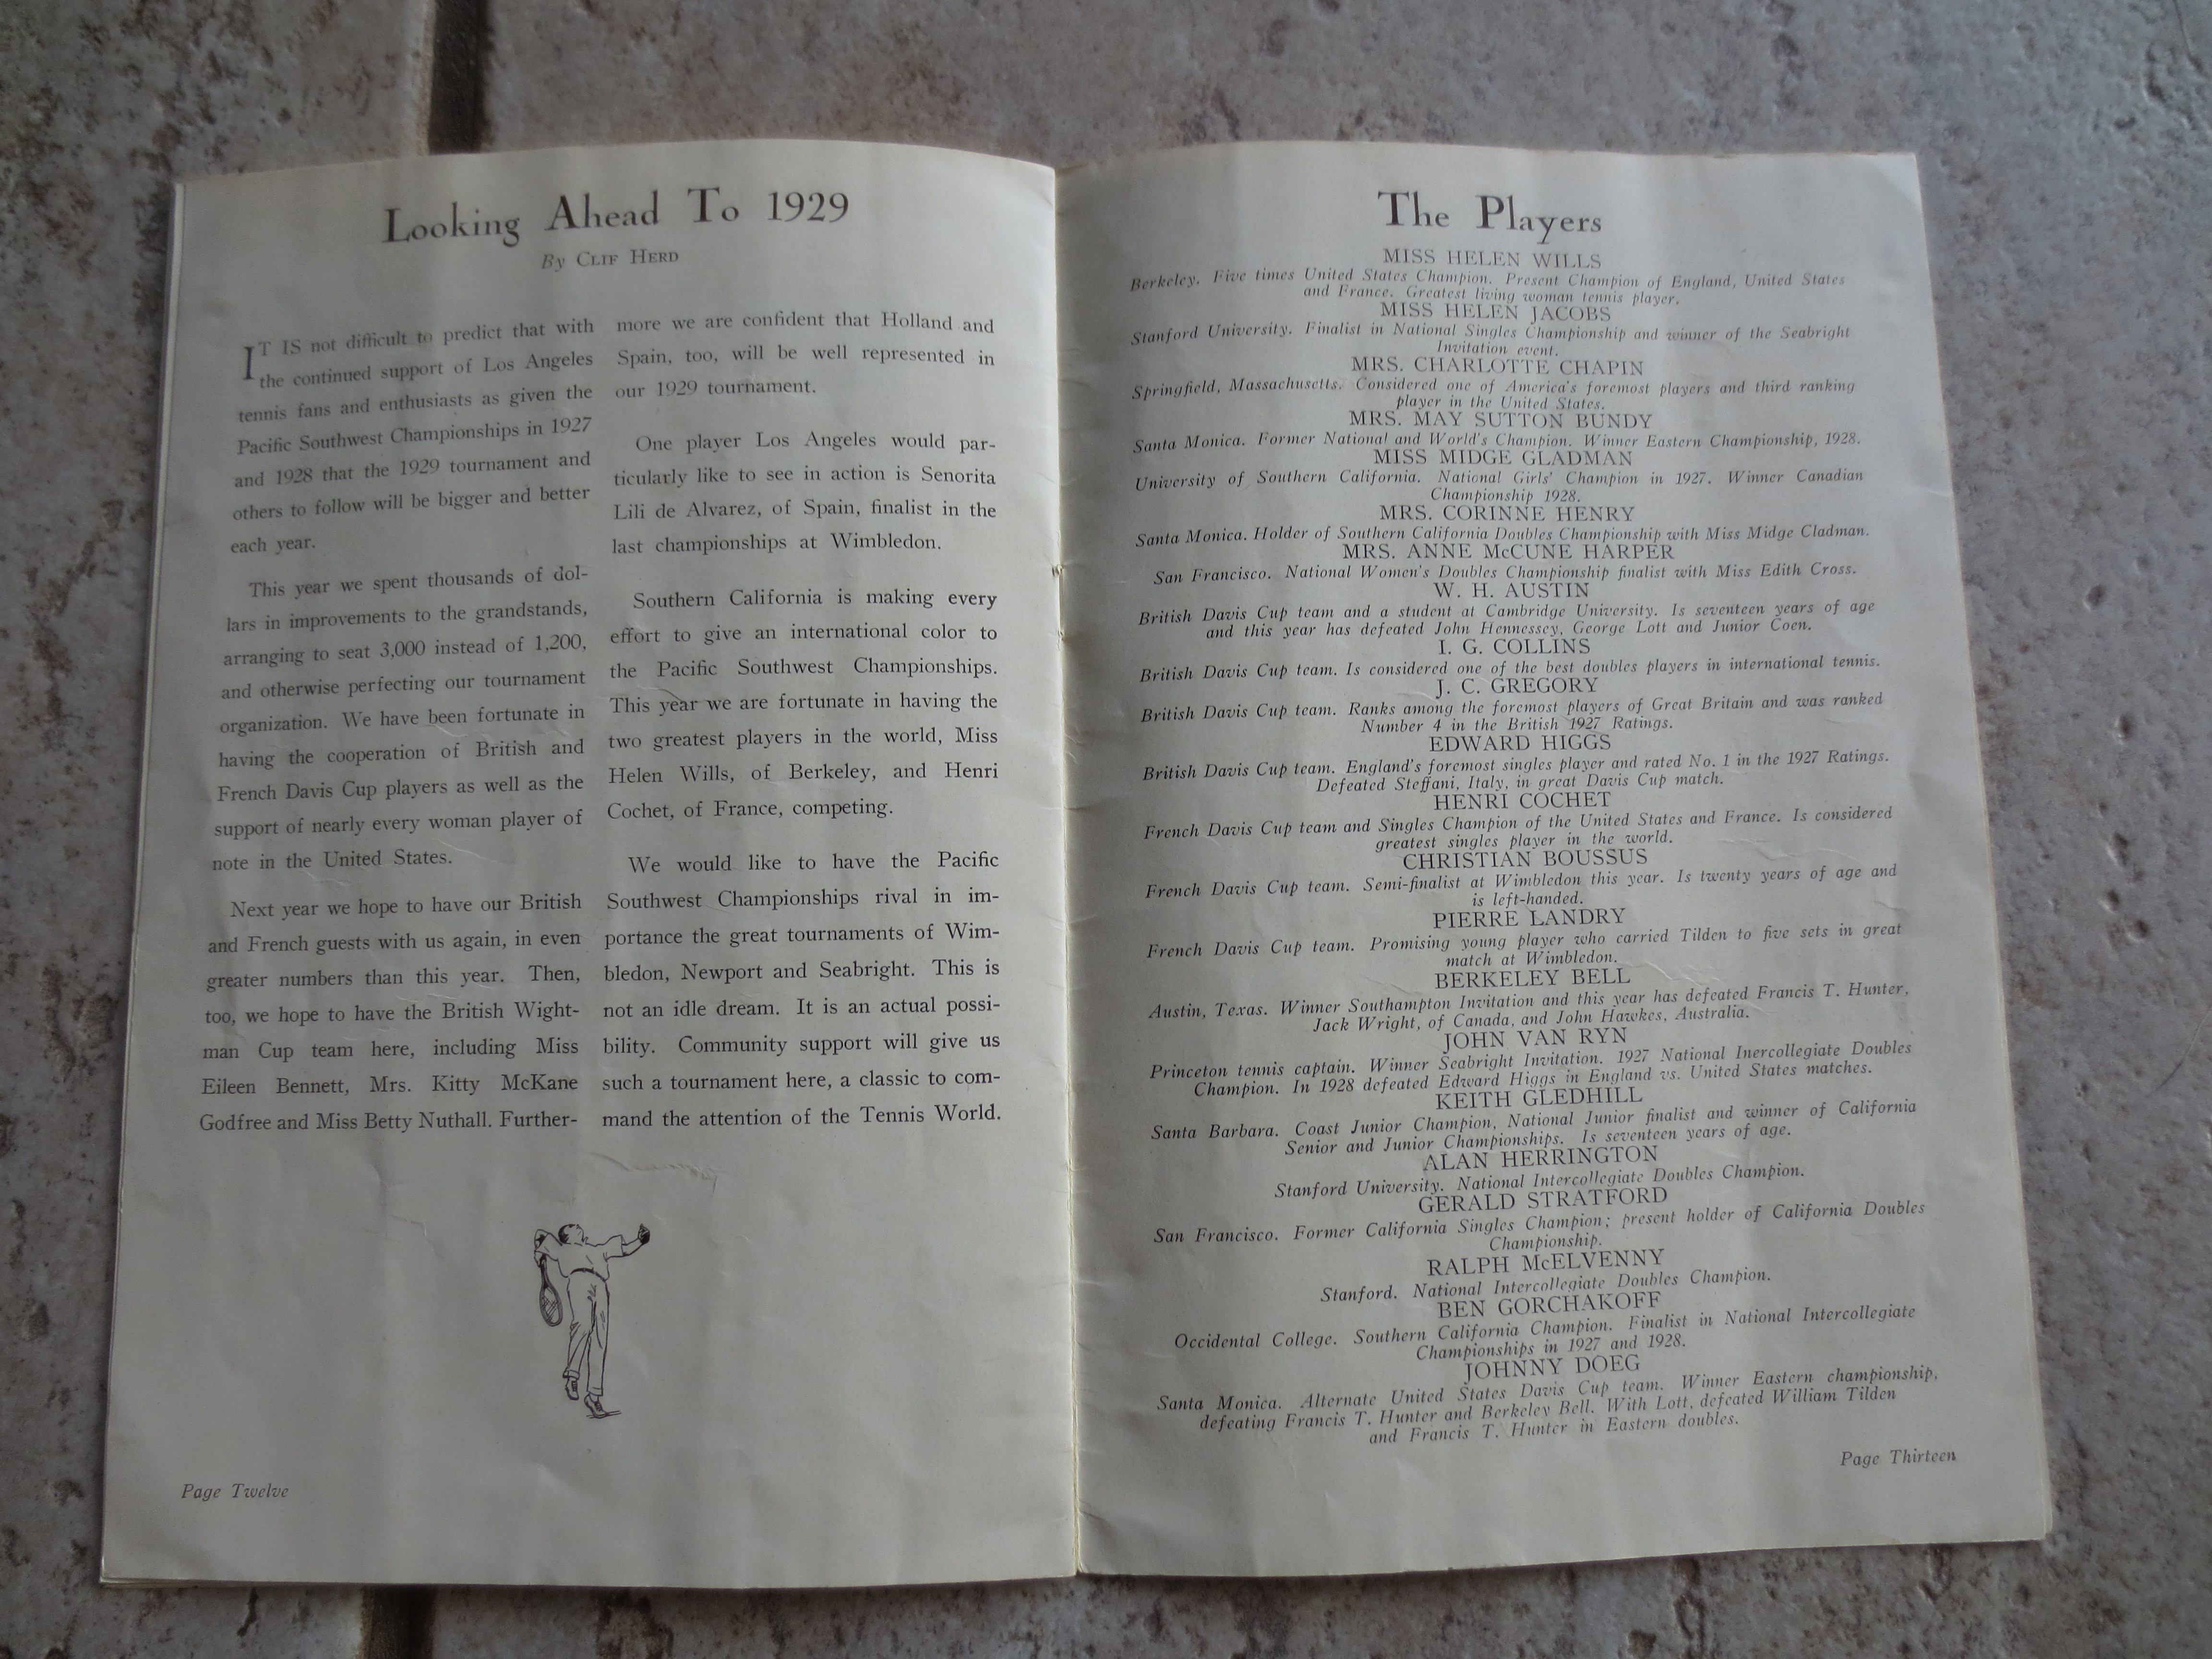 Looking Ahead To 1929
By CLIF HERD
IT IS not difficult to predict that with
the continued support of Los Angeles
tennis fans and enthusiasts as given the
Pacific Southwest Championships in 1927
and 1928 that the 1929 tournament and
others to follow will be bigger and better
each year.
This year we spent thousands of dol-
lars in improvements to the grandstands,
arranging to seat 3,000 instead of 1,200,
and otherwise perfecting our tournament
organization. We have been fortunate in
having the cooperation of British and
French Davis Cup players as well as the
support of nearly every woman player of
note in the United States.
Next year we hope to have our British
and French guests with us again, in even
greater numbers than this year. Then,
too, we hope to have the British Wight-
man Cup team here, including Miss
Eileen Bennett, Mrs. Kitty McKane
Godfree and Miss Betty Nuthall. Further-
more we are confident that Holland and
Spain, too, will be well represented in
our 1929 tournament.
One player Los Angeles would par-
ticularly like to see in action is Senorita
Lili de Alvarez, of Spain, finalist in the
last championships at Wimbledon.
Southern California is making every
effort to give an international color to
the Pacific Southwest Championships.
This year we are fortunate in having the
two greatest players in the world, Miss
Helen Wills, of Berkeley, and Henri
Cochet, of France, competing.
We would like to have the Pacific
Southwest Championships rival in im-
portance the great tournaments of Wim-
bledon, Newport and Seabright. This is
not an idle dream. It is an actual possi-
bility. Community support will give us
such a tournament here, a classic to com-
mand the attention of the Tennis World.
Page Twelve
The Players
MISS HELEN WILLS
Berkeley. Five times United States Champion. Present Champion of England, United States
and France. Greatest living woman tennis player.
MISS HELEN JACOBS
Stanford University. Finalist in National Singles Championship and winner of the Seabright
Invitation event.
MRS. CHARLOTTE CHAPIN
Springfield, Massachusetts. Considered one of America's foremost players and third ranking
player in the United States.
MRS. MAY SUTTON BUNDY
Santa Monica. Former National and World's Champion. Winner Eastern Championship, 1928.
MISS MIDGE GLADMAN
University of Southern California. National Girls' Champion in 1927. Winner Canadian
Championship 1928.
MRS. CORINNE HENRY
Santa Monica. Holder of Southern California Doubles Championship with Miss Midge Cladman.
MRS. ANNE McCUNE HARPER
San Francisco. National Women's Doubles Championship finalist with Miss Edith Cross.
W. H. AUSTIN
British Davis Cup team and a student at Cambridge University. Is seventeen years of age
and this year has defeated John Hennessey, George Lott and Junior Coen.
I. G. COLLINS
British Davis Cup team. Is considered one of the best doubles players in international tennis.
J. C. GREGORY
British Davis Cup team. Ranks among the foremost players of Great Britain and was ranked
Number 4 in the British 1927 Ratings.
EDWARD HIGGS
British Davis Cup team. England's foremost singles player and rated No. 1 in the 1927 Ratings.
Defeated Steffani, Italy, in great Davis Cup match.
HENRI COCHET
French Davis Cup team and Singles Champion of the United States and France. Is considered
greatest singles player in the world.
CHRISTIAN BOUSSUS
French Davis Cup team. Semi-finalist at Wimbledon this year. Is twenty years of age and
is left-handed.
PIERRE LANDRY
French Davis Cup team. Promising young player who carried Tilden to five sets in great
match at Wimbledon.
BERKELEY BELL
Austin, Texas. Winner Southampton Invitation and this year has defeated Francis T. Hunter,
Jack Wright, of Canada, and John Hawkes, Australia.
JOHN VAN RYN
Princeton tennis captain. Winner Seabright Invitation. 1927 National Inercollegiate Doubles
Champion. In 1928 defeated Edward Higgs in England vs. United States matches.
KEITH GLEDHILL
Santa Barbara. Coast Junior Champion, National Junior finalist and winner of California
Senior and Junior Championships. Is seventeen years of age.
ALAN HERRINGTON
Stanford University. National Intercollegiate Doubles Champion.
GERALD STRATFORD
San Francisco. Former California Singles Champion; present holder of California Doubles
Championship.
RALPH McELVENNY
Stanford. National Intercollegiate Doubles Champion.
BEN GORCHAKOFF
Occidental College. Southern California Champion. Finalist in National Intercollegiate
Championships in 1927 and 1928.
JOHNNY DOEG
Santa Monica. Alternate United States Davis Cup team. Winner Eastern championship,
defeating Francis T. Hunter and Berkeley Bell. With Lott, defeated William Tilden
and Francis T. Hunter in Eastern doubles.
Page Thirteen